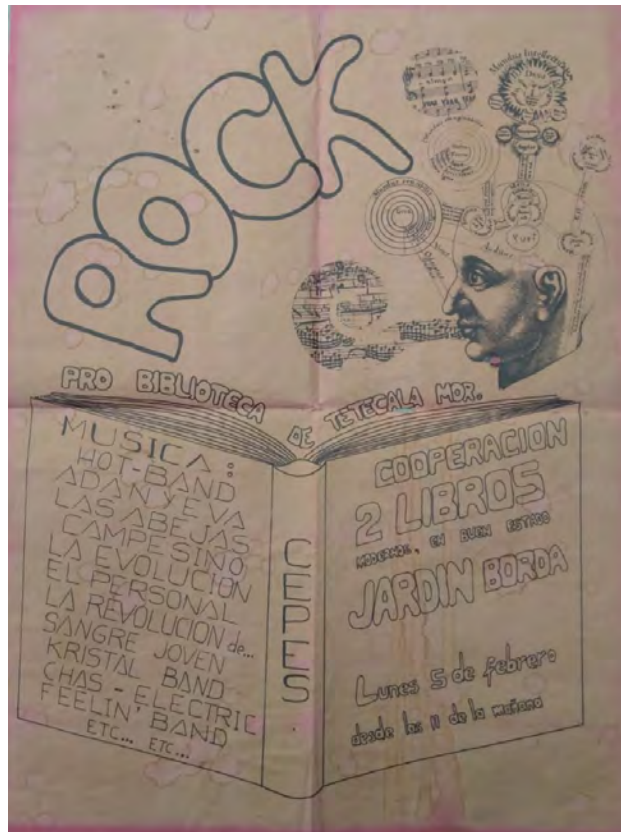 ROCK
PRO BIBLIOTECA DE TETECALA MOR.
MUSICA:
HOT-BAND
ADAN Y EVA
LAS ABEJAS
CAMPESINO
LA EVOLUCION
EL PERSONAL
LA REVOLUCION de...
SANGRE JOVEN
KRISTAL BAND
CHAS-ELECTRIC
FEELIN' BAND
ETC... ETC...
CEPES.
COOPERACION
2 LIBROS
MODERNOS, EN BUEN ESTADO
JARDIN BORDA
Lunes 5 de febrero
desde las 11 de la mañana